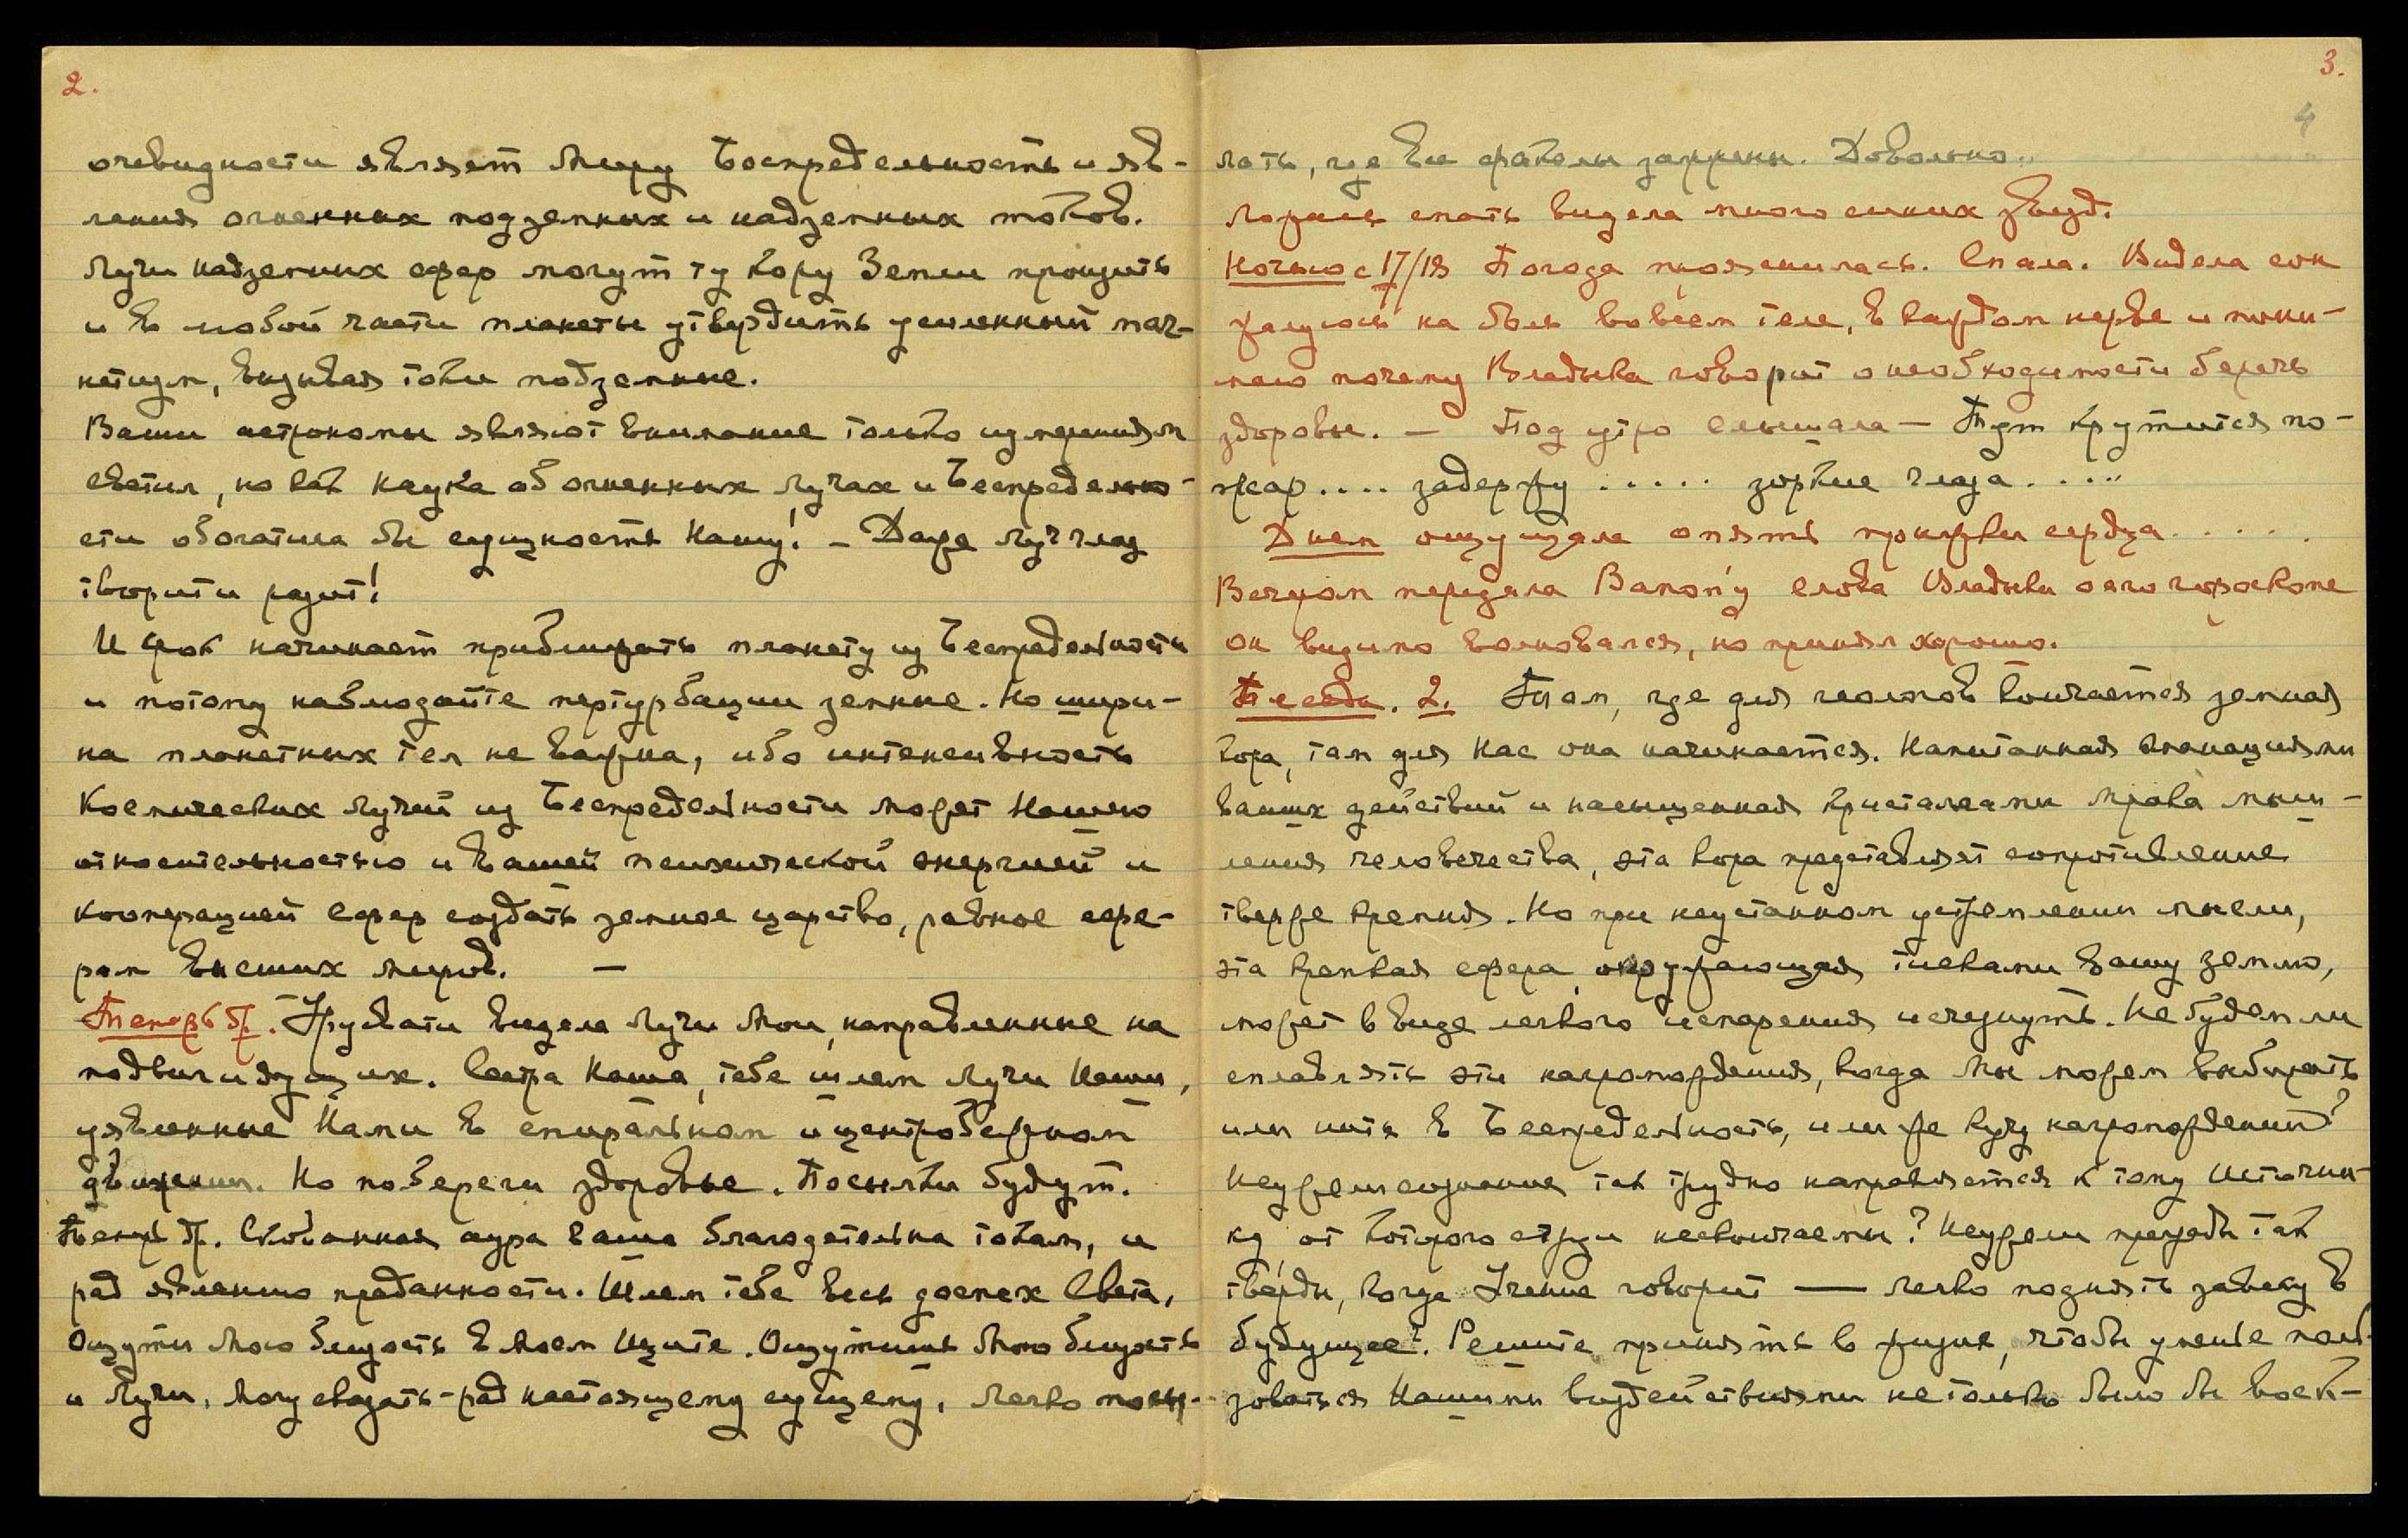 2.
очевидности являет Миру Беспредельность и яв-
ления огненных подземных и надземных токов.
Лучи надземных сфер могут ту кору Земли пронзить
и в любой части планеты утвердить усиленный маг-
нетизм, вызывая токи подземные.
Ваши астрономы являют внимание только измерениям
светил, но как наука об огненных лучах и Беспредельно-
сти обогатила бы сущность Нашу! – Даже луч глаз
творит и разит!
И фок начинает приближать планету из Беспредельности
и потому наблюдайте пертурбации земные. Но шири-
на планетных тел не важна, ибо интенсивность
Космических лучей из Беспредельности может Нашею
относительностью и вашей психической энергией и
кооперацией сфер создать земное царство, равное сфе-
рам высших миров. —
Теперь др. Урусвати видела лучи Мои, направленные на
подвиг идущих. Сестра Наша, тебе шлем лучи Наши,
уявленные Нами в спиральном и центробежном
движении. Но побереги здоровье. Посылки будут.
Теперь др. Скованная аура ваша благодетельна токам, и
рад явлению преданности. Шлем тебе весь доспех Света,
Ощути Мою близость в Моем Щите. Ощутишь Мою близость
и Лучи, могу сказать – рад настоящему сущему, легко посы-
3.
4
лать, где все факелы зажжены. Довольно.
Ложась спать видела много синих звезд.
Ночью с 17/18 Погода прояснилась. Спала. Видела сон
жалуюсь на боль во всем теле, в каждом нерве и пони-
маю почему Владыка говорит о необходимости беречь
здоровье. – Под утро слышала – Тут крутится по-
жар.... задержу ..... зоркие глаза.....
Днем ощущала опять уколы сердца.....
Вечером передала слова Владыки о его гороскопе
он видимо волновался, но принял хорошо.
Беседа. 2. Там, где для геологов кончается земная
кора, там для Нас она начинается. Напитанная эманациями
ваших действий и насыщенная кристаллами мрака мыш-
ления человечества, эта кора представляет сопротивление
тверже кремня. Но при неустанном устремлении мысли,
эта крепкая сфера, окружающая тисками вашу землю,
может в виде легкого испарения исчезнуть. Не будем ли
сплавлять эти нагромождения, когда Мы можем выбирать
или путь в Беспредельность, или же кучу нагромождений?
Неужели сознание так трудно направляется к тому Источни-
ку, от которого струи нескончаемы? Неужели преграды так
тверды, когда Учение говорит — легко поднять завесу в
будущее? Решите принять в жизнь, чтобы умение поль-
зоваться Нашими воздействиями не только было бы воск-